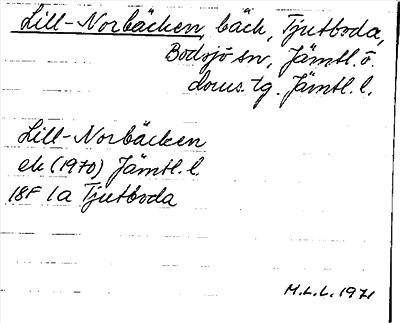 Lill-Norbäcken, bäck, Tjutboda,
Bodsjö sn, Jämtl. ö.
doms. tg. Jämtl. l.
Lill-Norbäcken
ek (1970) Jämtl. l
18F 1a Tjutboda
M.L.L. 1971